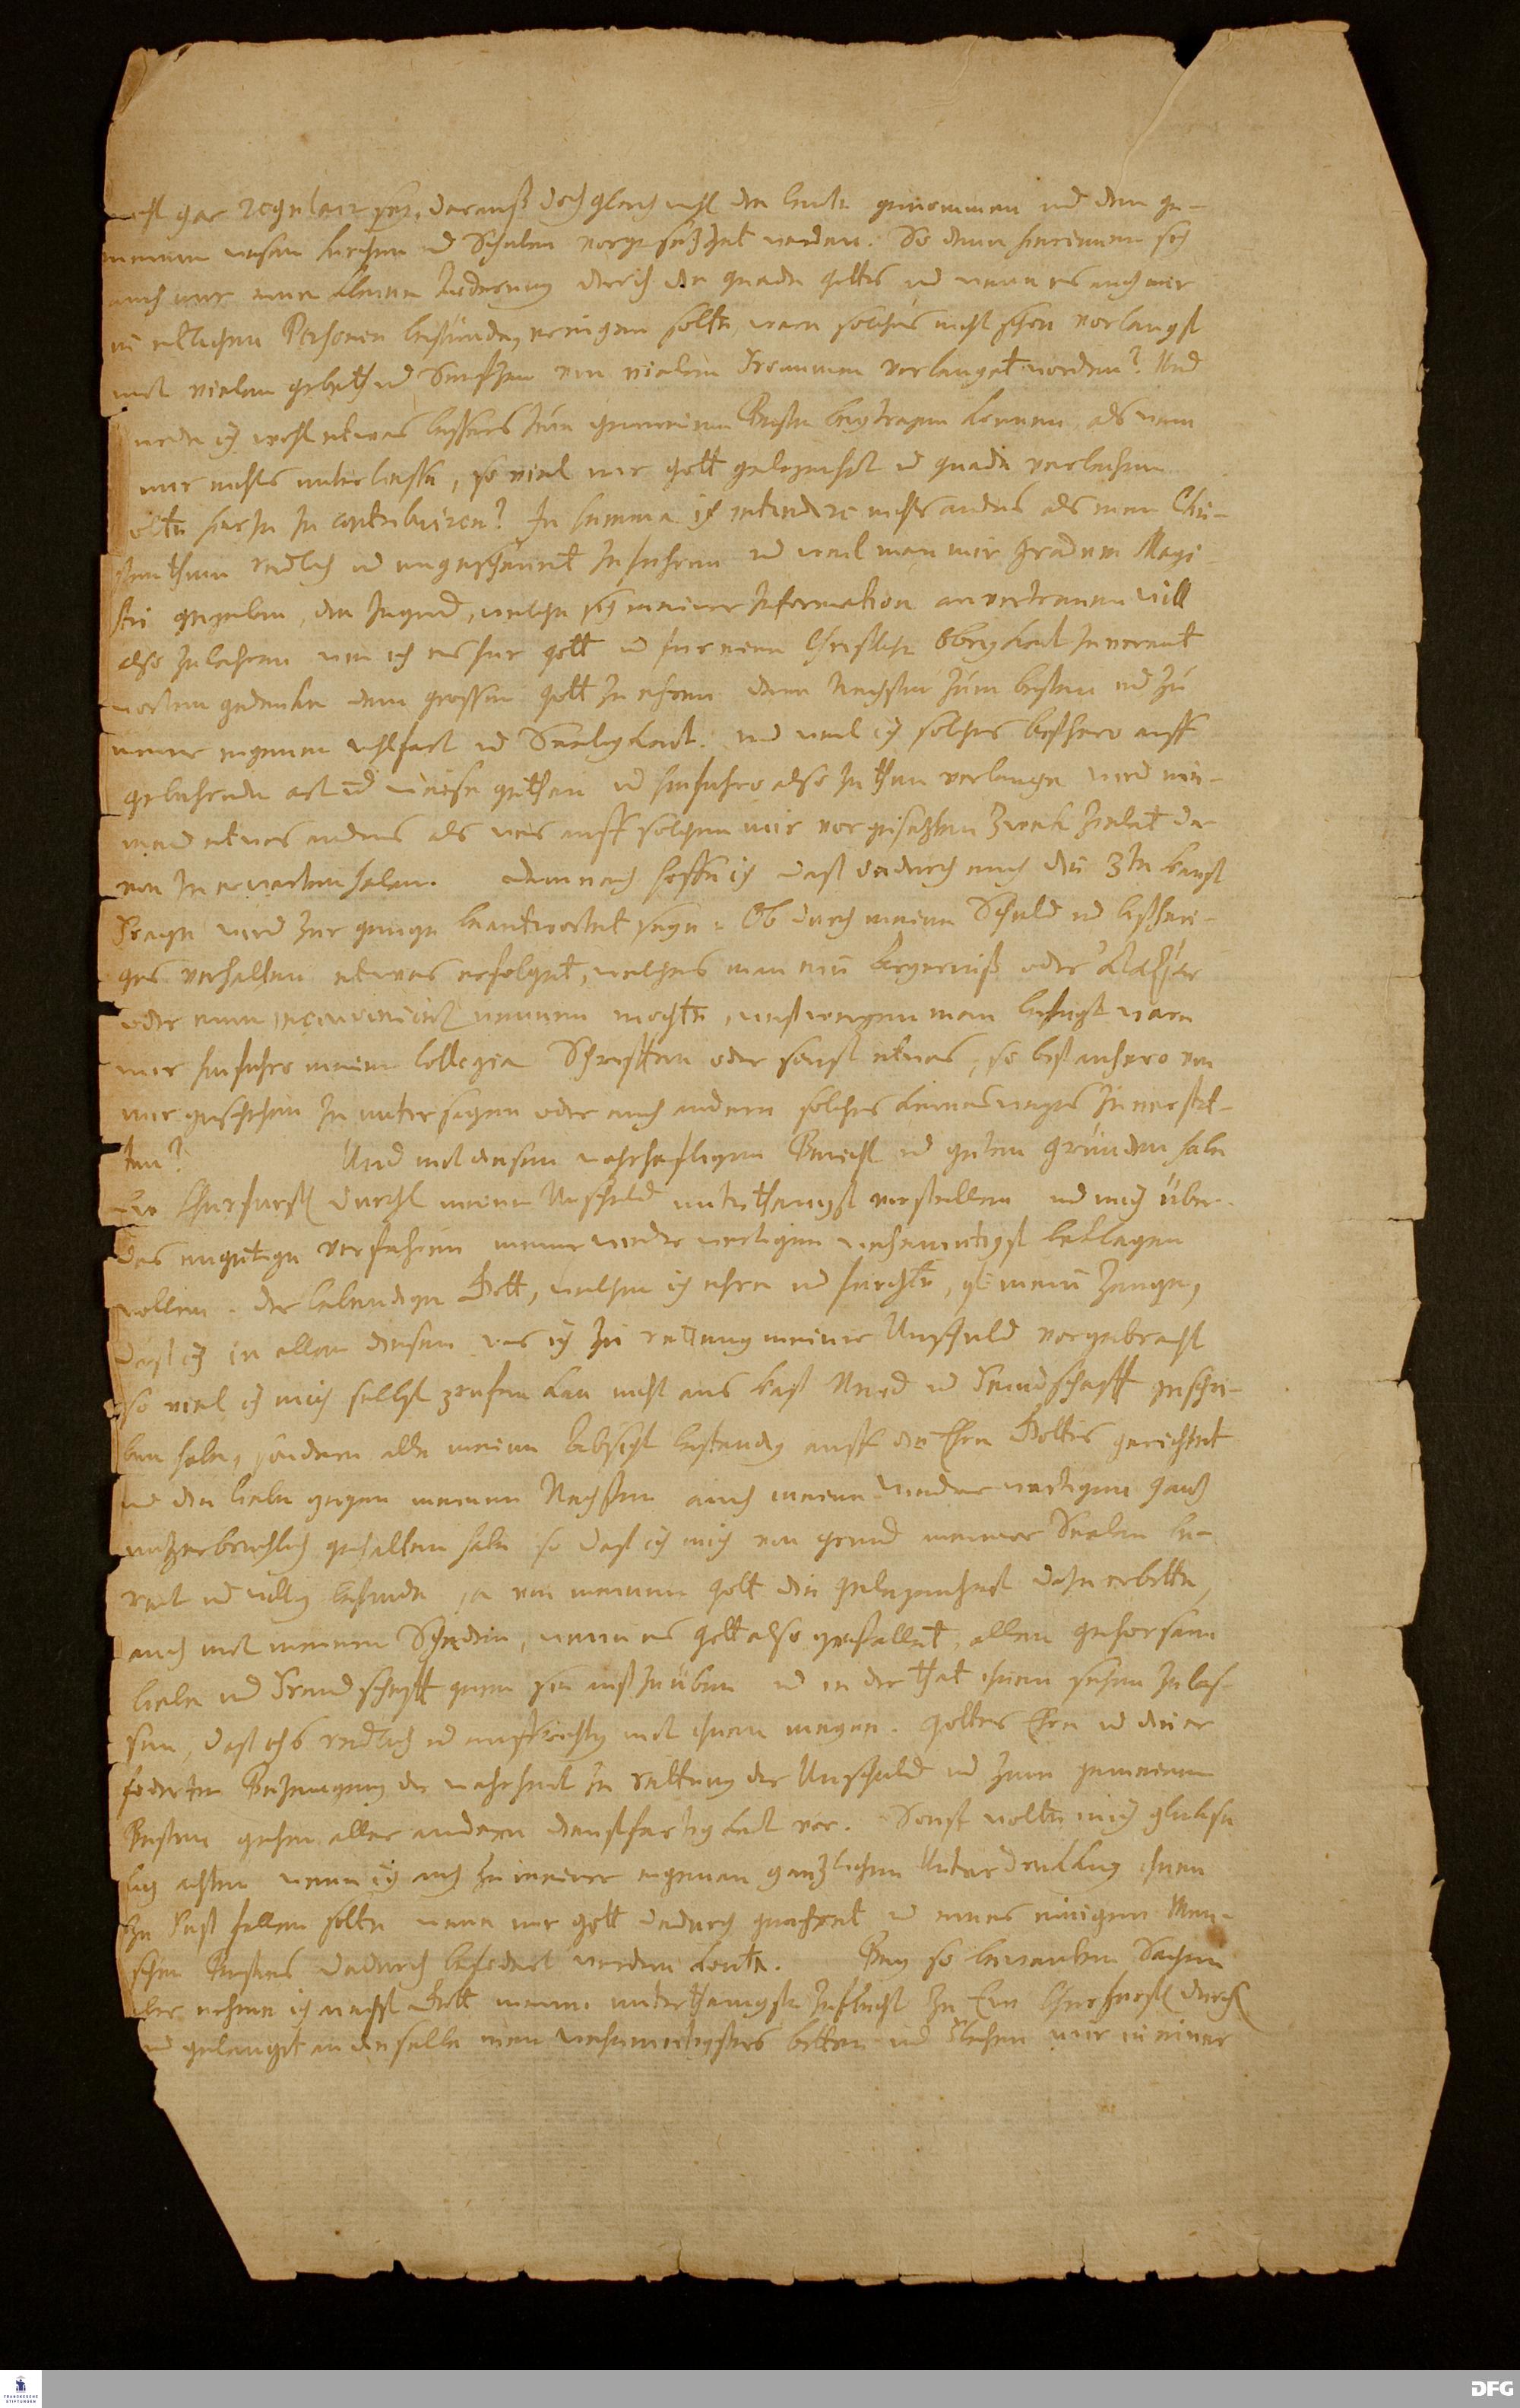 nicht gar regulair sey, darauß doch gleichwohl die leute genommen und dem ge-
meinen wesen kirchen ud Schulen vorgesetzet werden. So denn hierinnen sich
auch nur eine kleine änderung durch die gnade Gottes ud wenn es auch nur
in etlichen Personen bestünde, ereignen solte, wäre solches nicht schon vorlängst
mit vielem gebeth ud Seufftzen von vielen Frommen verlanget worden? Und
werde ich wohl etwas bessers zum gemeinen Besten beytragen können, als wenn
mir nichts unterliesse, so viel mir Gott gelegenheit ud gnade verleihen
wolte hierzu zu contribuiren? In summa ich intendire nichts anders als mein Chri-
stenthum redlich ud ungescheuet zu führen ud weil man mir Gradum Magi-
stri gegeben, die Jugend, welche sich meiner Information anvertrauen will
also zu lehren wie ich es für Gott ud für einer Christlichen Obrigkeit zu verant
worten gedencke dem grossen Gott zu ehren dem Nechsten zum besten ud zu
meiner eigenen wohlfart ud Seeligkeit. und weil ich solches bißhero auff
gebührende art ud weise gethan ud hinführo also zu thun verlange wird nie-
mand etwas anders als was auff solchen mir vorgesetzten Zweck zielet da
von zu erwarten haben. Demnach hoffe ich daß dadurch auch die 3te Haupt
Frage wird zur gnüge beantwortet seyn: Ob durch meine Schuld ud bißheri-
ges verhalten etwas erfolget, welches man ein ärgerniß oder
oder einen inconvenient nennen möchte, weßwegen man befugt wäre
mir hinführo meine Collegia Schrifften oder sonst etwas, so bißanhero von
mir geschehen zu untersagen oder auch andern solches keineswegs zu verstat-
ten? Und mit diesem wahrhafftigen Bericht ud guten gründen habe
Ew Churfürstl Durchl meine Unschuld unterthänigst vorstellen ud mich über
das ungütige verfahren meiner wiederwertigen wehemütigst beklagen
wollen. Der lebendige Gott, welchen ich ehre ud fürchte, ist mein Zeuge,
daß ich in allen diesen was ich zu rettung meiner Unschuld vorgebracht
so viel ich mich selbst prüfen kan nicht aus haß Neid ud Feindschafft geschrie-
ben habe, sondern alle meine Absicht beständig auff die Ehre Gottes gerichtet
ud die liebe gegen meinen Nechsten auch meine wiederwertigen gantz
unzerbrüchlich gehalten habe so daß ich mich von grund meiner Seelen be-
reit ud willig befinde, ja von meinem Gott die gelegenheit dazu erbitte,
auch mit meinem Schaden, wenn es Gott also gefället, allen gehorsam
liebe ud Freundschafft gegen sie außzuüben ud in der that ihnen sehen zu las-
sen, daß ichs redlich ud auffrichtig mit ihnen meyne. Gottes Ehre ud die er
foderten Bezeugung der wahrheit zu rettung der Unschuld ud zum gemeinen
Besten gehen aller andern dienstfertigkeit vor. Sonst wolte mich glückse
lig achten wenn ich auch zu meiner eigenen gäntzlichen Unterdrückung ihnen
zu Fuß fallen solte wenn nur Gott dadurch geehret ud eines einigen Men-
schen Bestes dadurch befodert werden könte. Bey so bewandten Sachen
aber nehme ich nechst Gott meine unterthänigste Zuflucht zu Ew Churfürstl Durchl
ud gelanget an dieselbe mein wehemütigstes bitten ud Flehen mir in einer